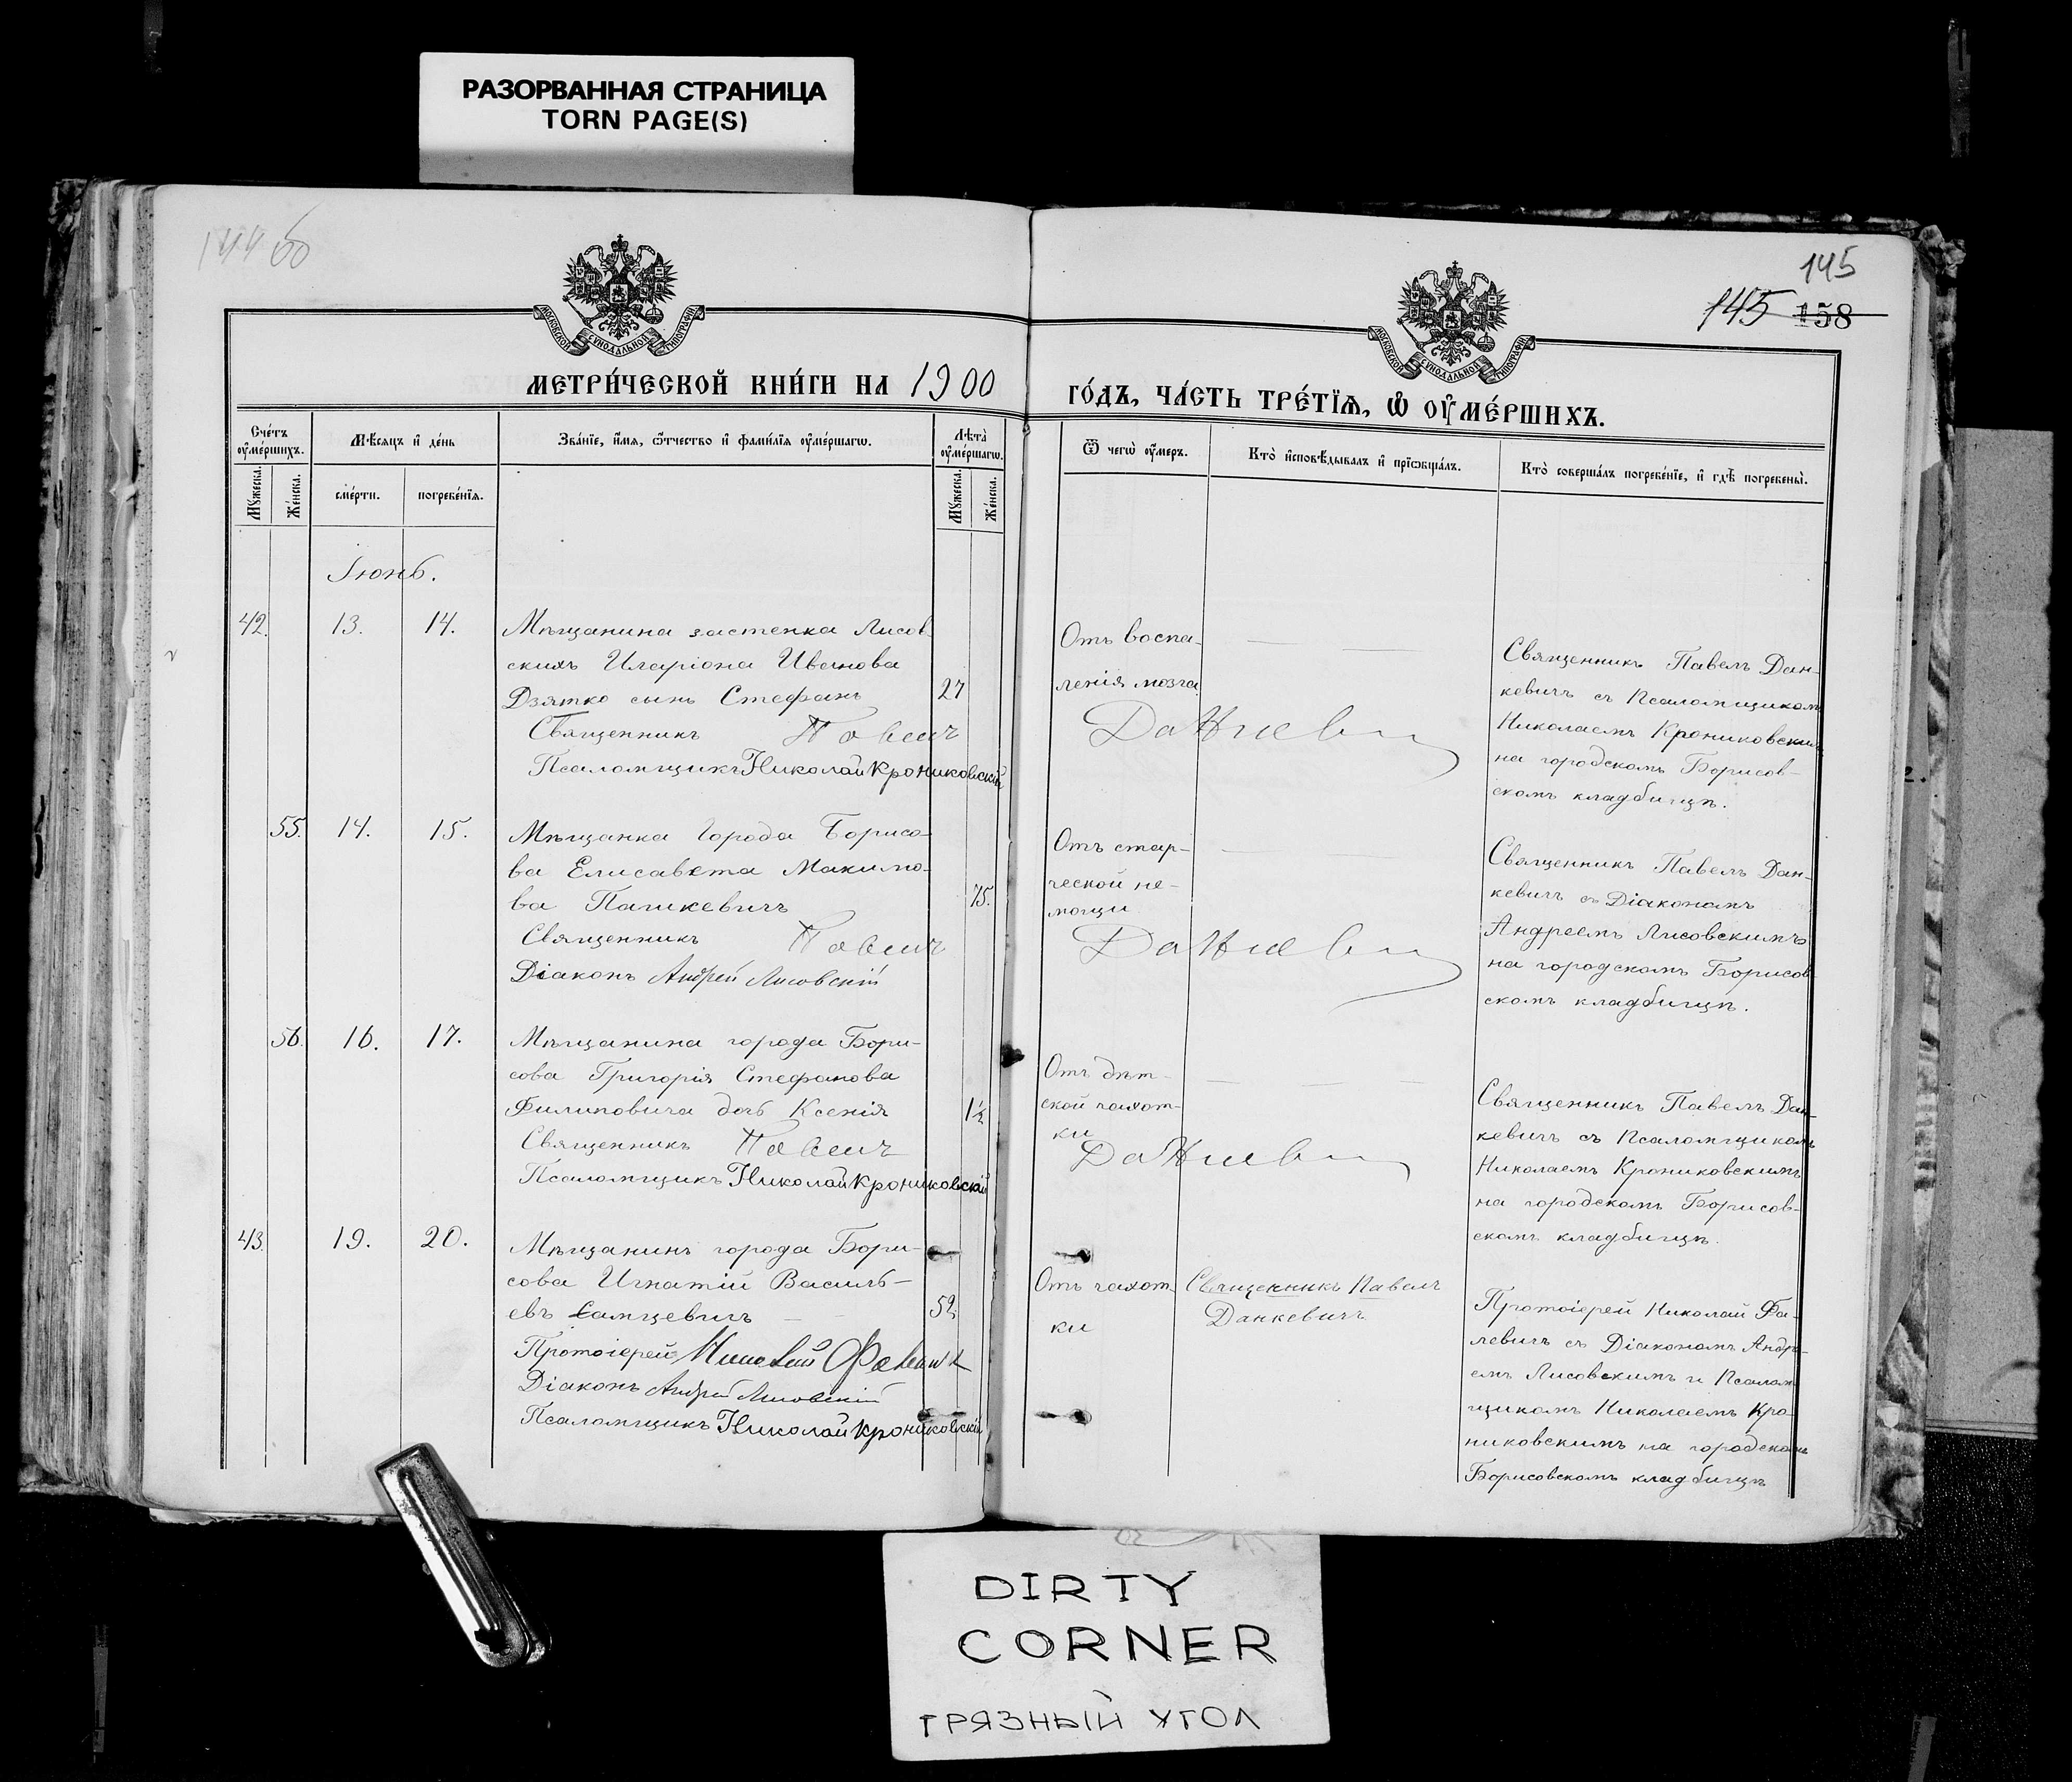 РАЗОРВАННАЯ СТРАНИЦА
TORN PAGE(S)
145
145 158
МОСКОВСКОЙ СѴНОДАЛЬНОЙ ТИПОГРАФІИ
МОСКОВСКОЙ СѴНОДАЛЬНОЙ ТИПОГРАФІИ
МЕТРИ́ЧЕСКОЙ КНИ́ГИ НА 1900
ГО́ДЪ, ЧА́СТЬ ТРЕ́ТЇѦ, Ѡ҆ ОУ҆МЕ́РШИХЪ.
Сче́тъ оу҆ме́ршихъ.
Мꙋ́жеска.
Же́нска.
Мѣ́сѧцъ и҆ де́нь
сме́рти.
погребе́нїѧ.
Зва́нїе, и҆́мѧ, ѻ҆́тчество и҆ фами́лїѧ оу҆ме́ршагѡ.
Лѣ́та оу҆ме́ршагѡ.
Мꙋ́жеска.
Же́нска.
Ѿ чегѡ̀ оу҆́меръ.
Кто̀ и҆сповѣ́дывалъ и҆ прїѡбща́лъ.
Кто̀ соверша́лъ погребе́нїе, и҆ гдѣ̀ погребены̀.
Іюнь.
42. 13. 14.
Мѣщанина застенка Лисов-
скихъ Иларіона Иванова
Дзятко сынъ Стефанъ
27
Священникъ Павелъ
Псаломщикъ Николай Крониковскій
Отъ воспа-
ленія мозга
Данкевичъ
Священникъ Павелъ Дан-
кевичъ съ Псаломщикомъ
Николаемъ Крониковскимъ
на городскомъ Борисов-
скомъ кладбищѣ.
55. 14. 15.
Мѣщанка города Борисо-
ва Елисавета Макимо-
ва Пашкевичъ
75.
Священникъ Павелъ
Діаконъ Андрей Лисовскій
Отъ стар-
ческой не-
мощи
Данкевичъ
Священникъ Павелъ Дан-
кевичъ съ Діакономъ
Андреемъ Лисовскимъ
на городскомъ Борисов-
скомъ кладбищѣ.
56. 16. 17.
Мѣщанина города Бори-
сова Григорія Стефанова
Филиповича дочь Ксенія
1½
Священникъ Павелъ
Псаломщикъ Николай Крониковскій
Отъ дѣт-
ской чахот-
ки
Данкевичъ
Священникъ Павелъ Дан-
кевичъ съ Псаломщикомъ
Николаемъ Крониковскимъ
на городскомъ Борисов-
скомъ кладбищѣ.
43. 19. 20.
Мѣщанинъ города Бори-
сова Игнатій Василь-
евъ Самцевичъ
52.
Протоіерей Николай Фалевичъ
Діаконъ Андрей Лисовскій
Псаломщикъ Николай Крониковскій
Отъ чахот-
ки
Священникъ Павелъ
Данкевичъ
Протоіерей Николай Фа-
левичъ съ Діакономъ Андре-
емъ Лисовскимъ и Псалом-
щикомъ Николаемъ Кро-
никовскимъ на городскомъ
Борисовскомъ кладбищѣ
DIRTY
CORNER
ГРЯЗНЫЙ УГОЛ